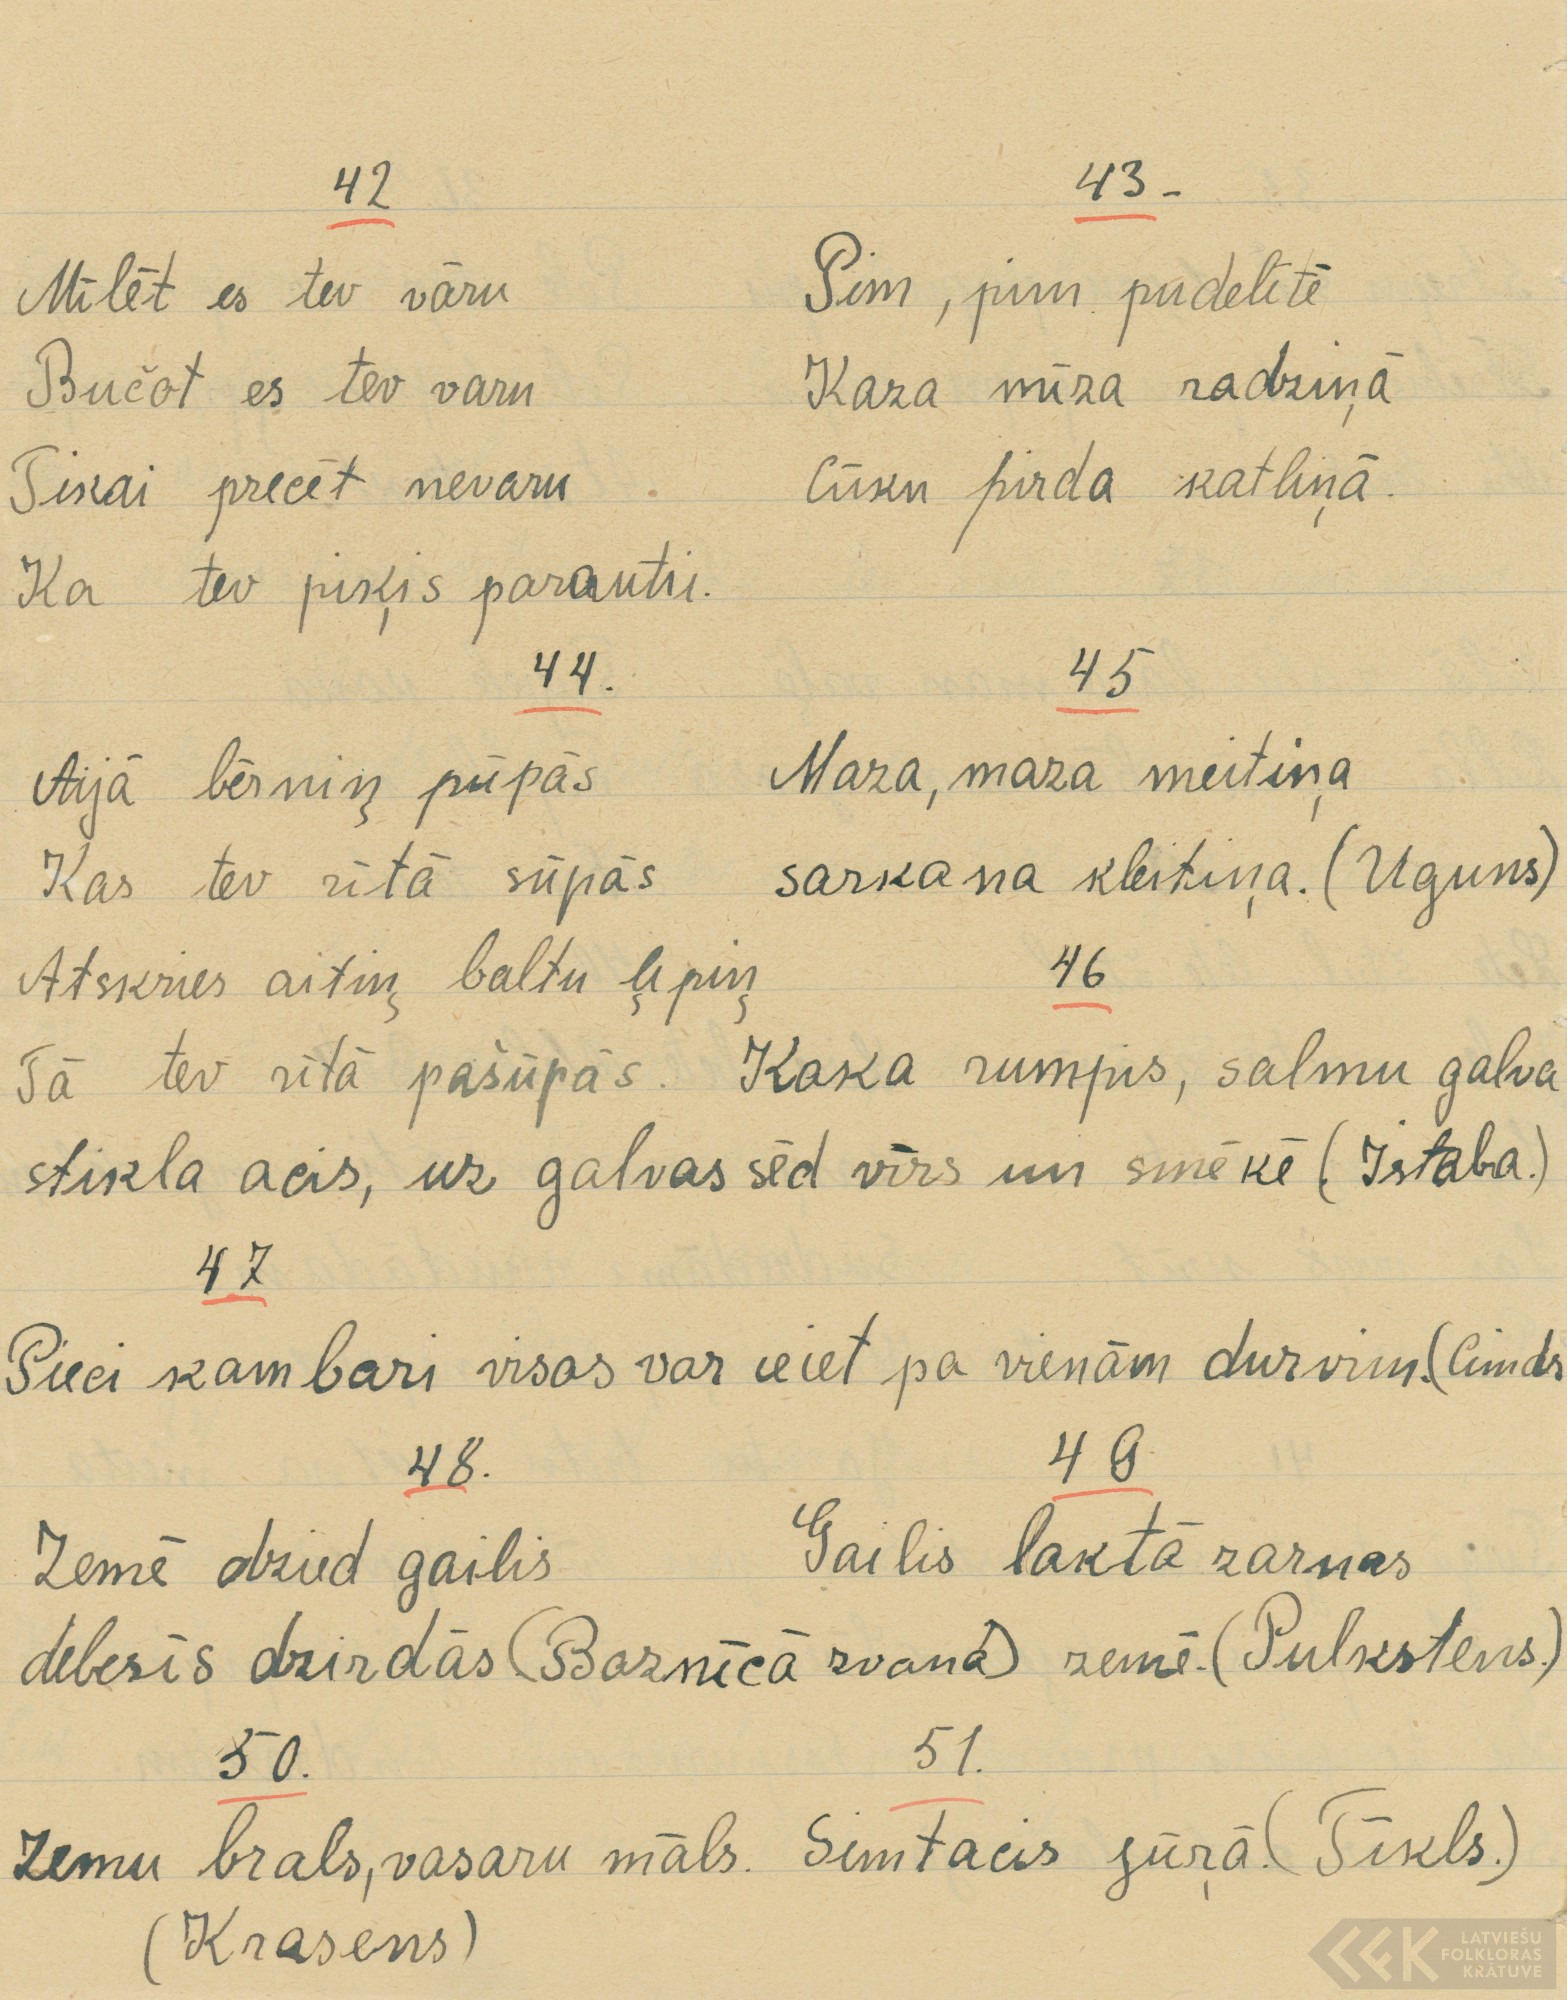 42
Mīlēt es tev vāru
Bučot es tev varu
Tikai precēt nevaru
Ka tev piķis parautu.
43-
Pim, pim pudelītē
Kaza mīza radziņā
Cūku pirda katliņā.
44.
Aijā bērniņ pūpās
Kas tev rītā sūpās
Atskries aitiņ baltu ļipiņ
Tā tev rītā pašūpās.
45
Maza, maza meitiņa
sarkana kleitiņa. (Uguns)
46
Koka rumpis, salmu galva
stikla acis, uz galvas sēd vīrs un smēkē (Istaba.)
47
Pieci kambari visos var ieiet pa vienām durvim. (Cimds
48.
Zemē dzied gailis
debesīs dzirdās (Baznīcā zvanā)
49
Gailis laktā zarnas
zemē. (Pulkstens.)
50.
Zemu brals, vasaru māls.
(Krasens)
51.
Simtacis jūŗā. (Tīkls.)
LATVIEŠU
FOLKLORAS
KRĀTUVE